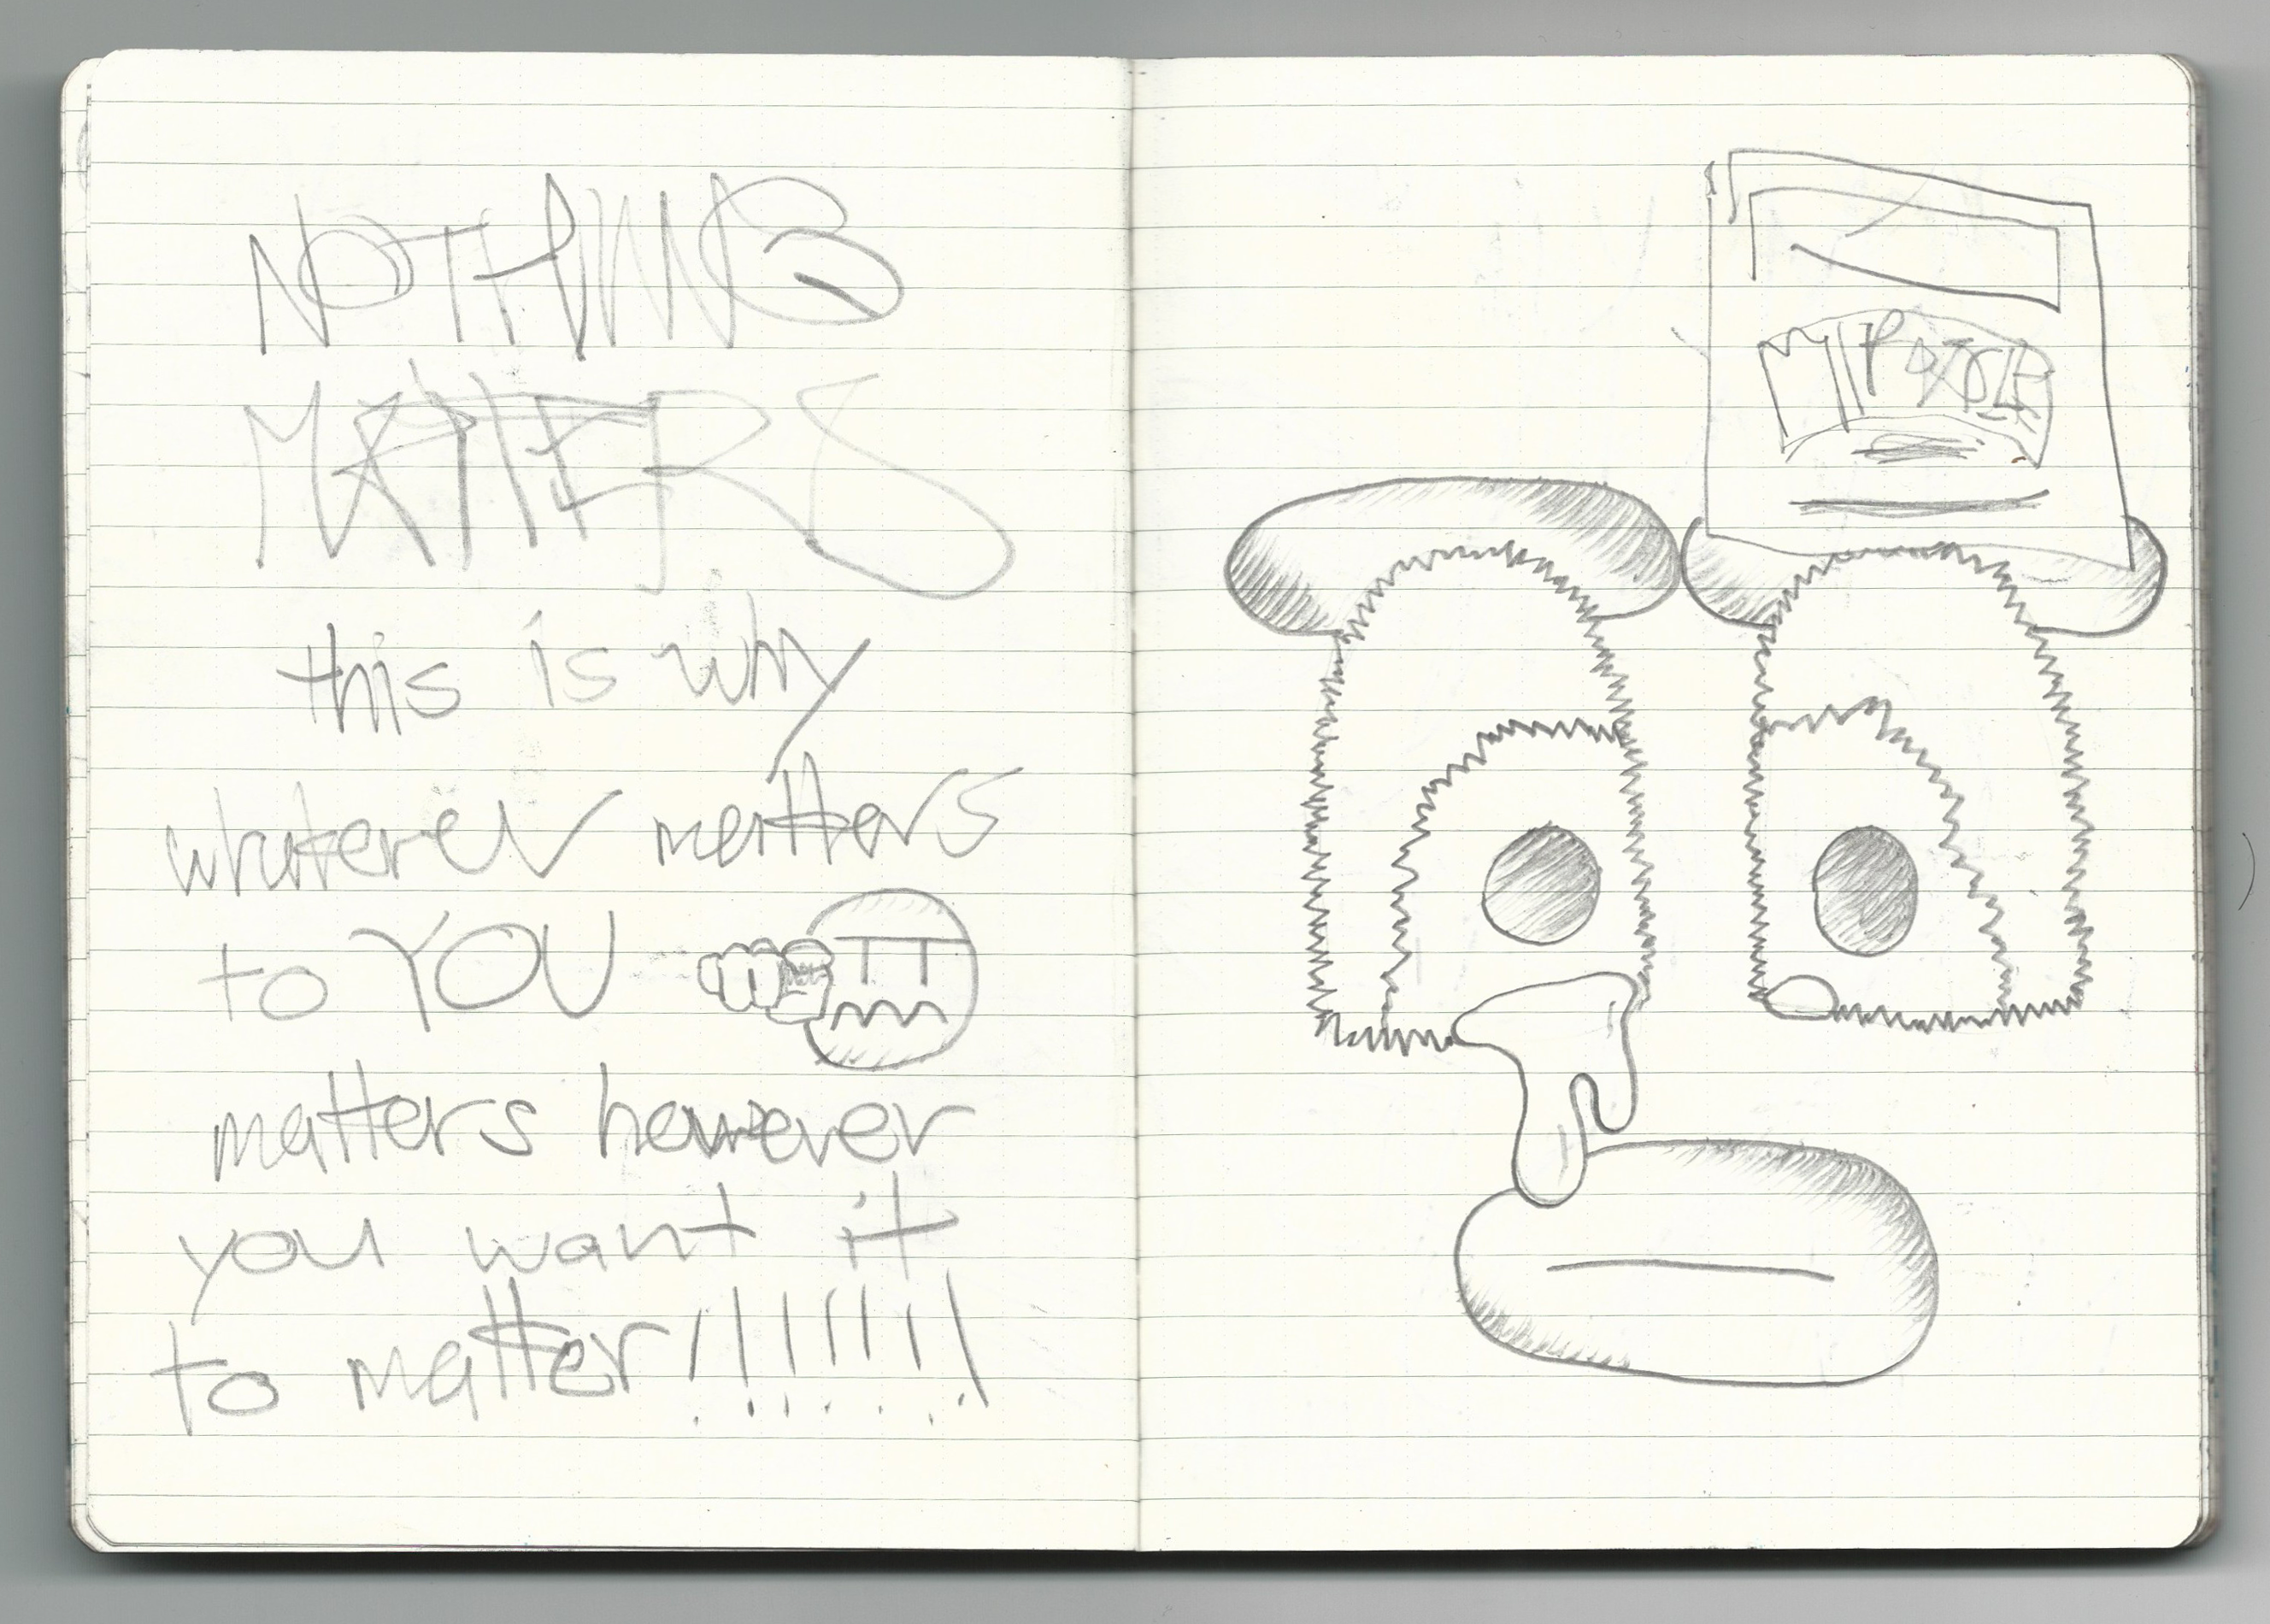 NOTHING
MATTERS
this is why
whatever matters
to YOU
matters however
you want it
to matter!!!!!!!